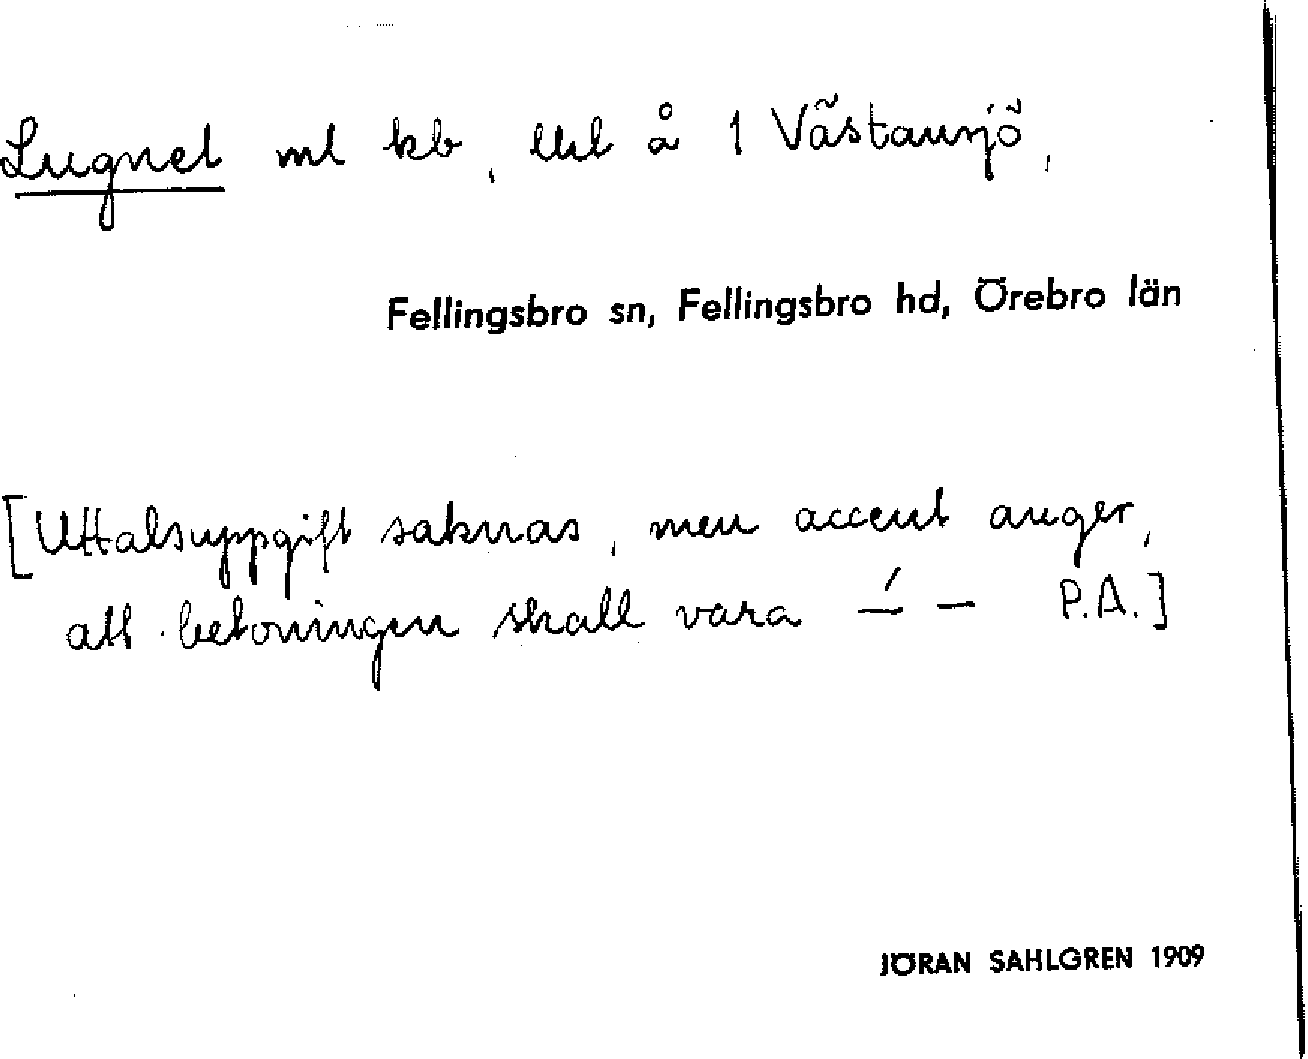 Lugnet ml kb, llrl å 1 Västansjö,
Fellingsbro sn, Fellingsbro hd, Örebro län
[Uttalsuppgift saknas, men accent anger,
att betoningen skall vara –́ – P.A.]
JÖRAN SAHLGREN 1909